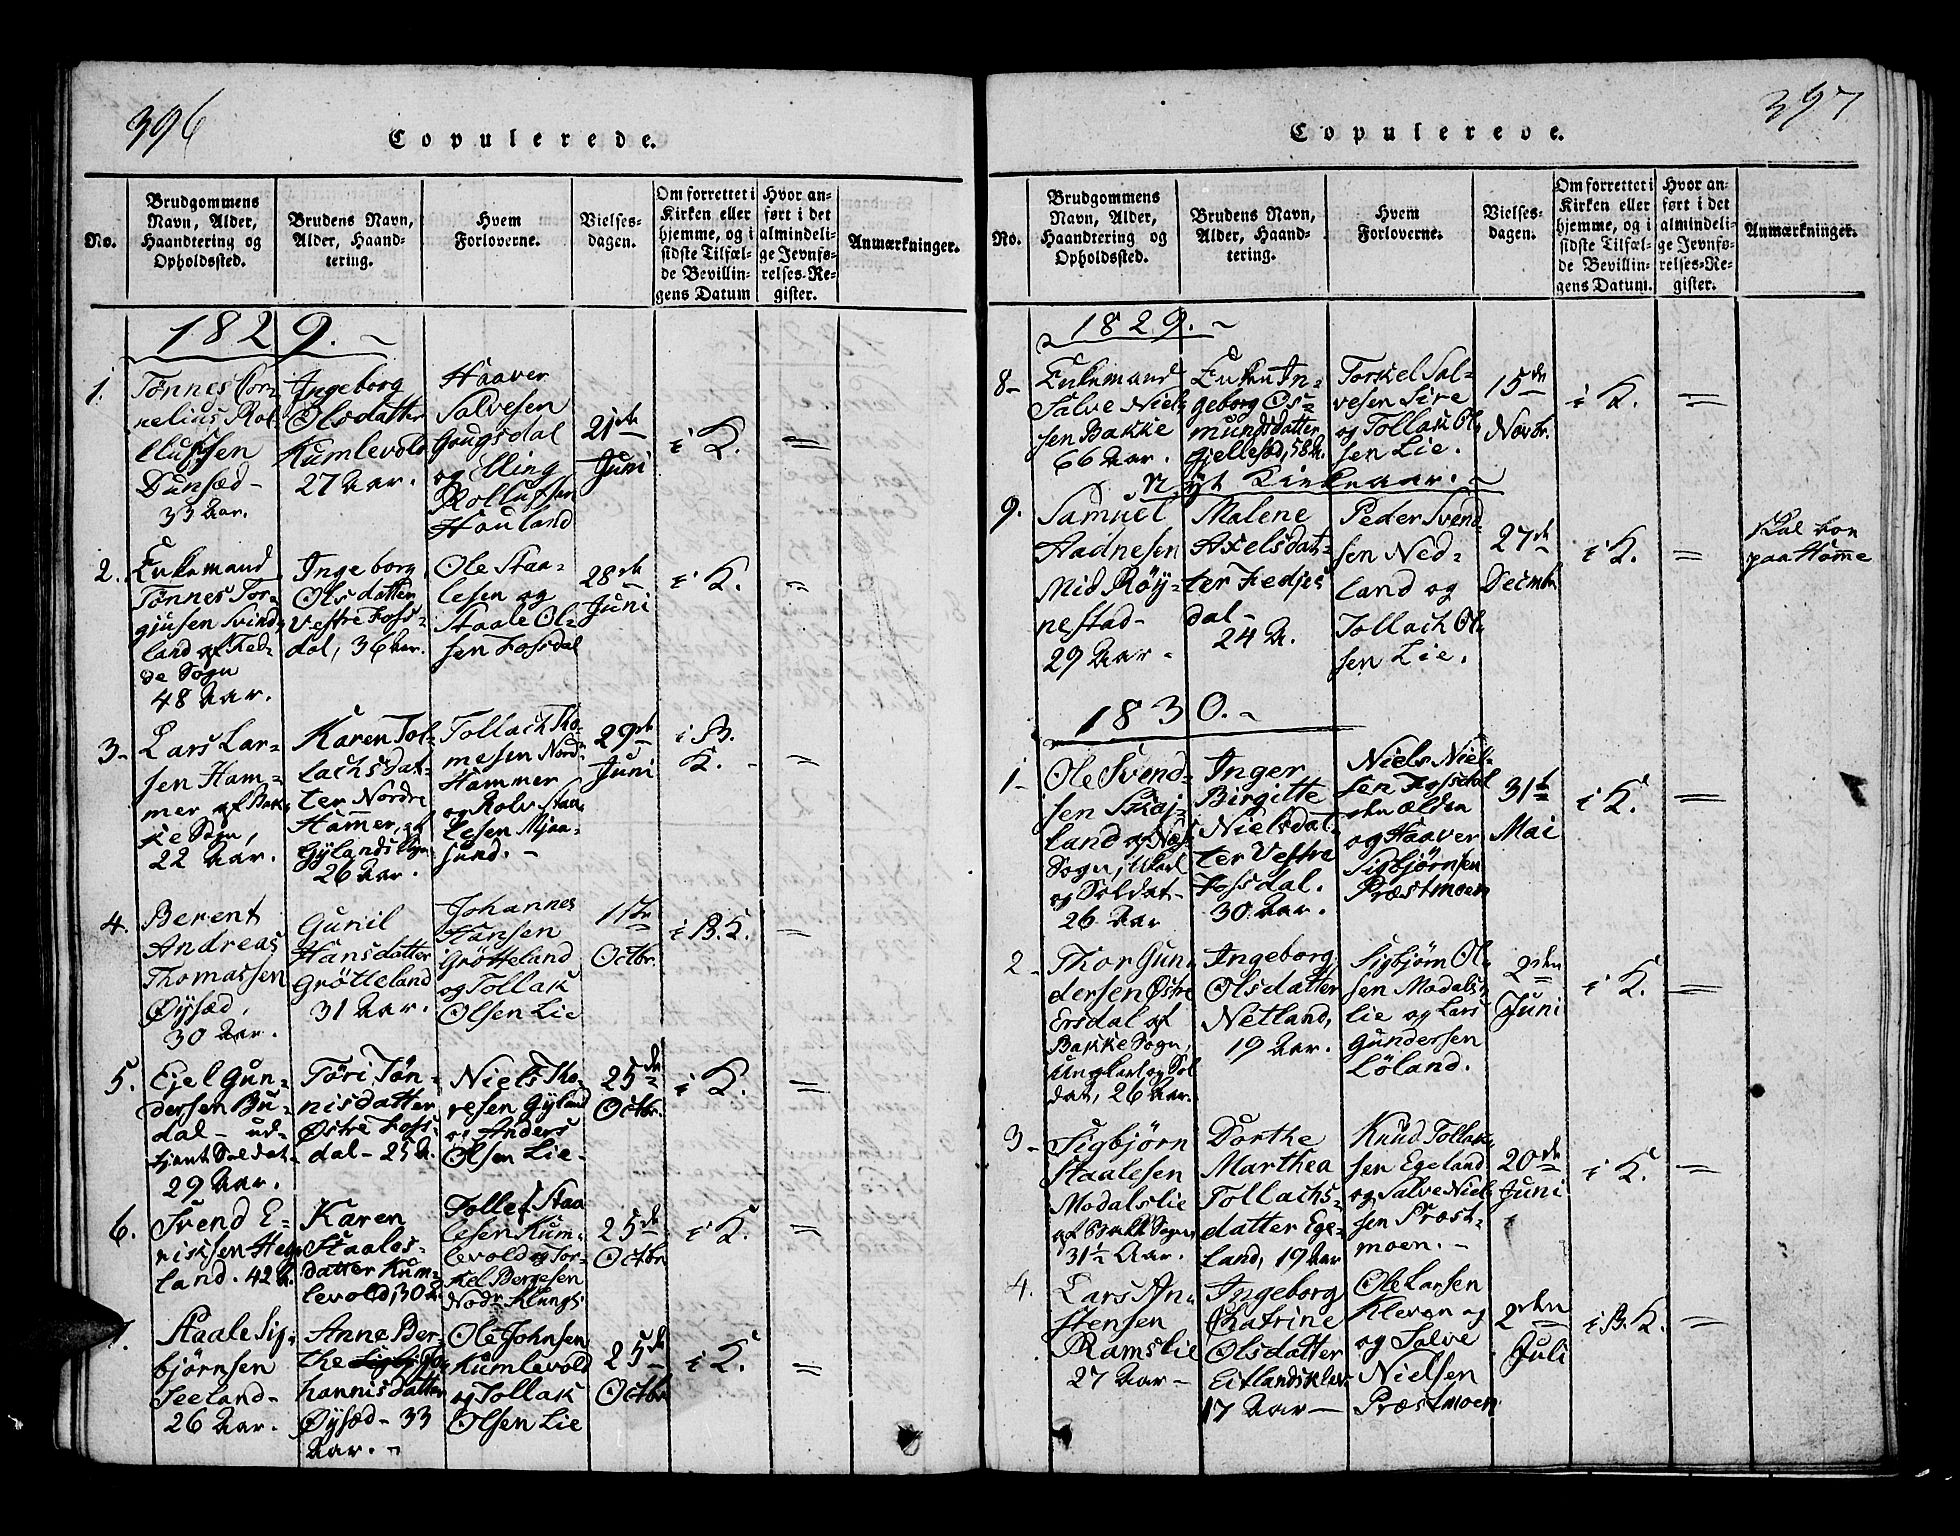 396
Copulerede.
No.
Brudgommens
Navn, Alder,
Haandtering og
Opholdssted.
Brudens Navn,
Alder, Haand-
tering.
Hvem
Forloverne.
Vielses-
dagen.
Om forrettet i
Kirken eller
hjemme, og i
sidste Tilfæl-
de Bevillin-
gens Datum
Hvor an-
ført i det
almindeli-
ge Jevnfø-
relses-Re-
gister.
Anmærkninger.
1829.
1.
Tønnes Cor-
nelius Rol
lufsen
Dunsæd-
33 Aar.
Ingeborg
Olsdatter
Kumlevold
27 Aar.
Haaver
Salvesen
og Elling
Rollufsen
Houland
21de
Juni
i K.
2.
Enkemand
Tønnes Tor-
gjusen Svind-
land af Fed-
de Sogn
48 Aar.
Ingeborg
Olsdatter
Vestre Foss-
dal, 36 Aar.
Ole Staa-
lesen og
Staale Ol-
sen Fossdal
28de
Juni
i K.
3-
Lars Lar-
sen Ham-
mer, af Bak-
ke Sogn,
22 Aar.
Karen Tol-
lachsdat-
ter Nordre
Hamer, af
Gylands Sogn
26 Aar.
Tollach Tho-
mesen Nordr
Hammer
og Rolv Staa-
lesen Mjaa-
sund.-
29de
Juni
i B.
K.
4.
Berent
Andreas
Thomassen
Øysæd,
30 Aar.
Gunil
Hansdatter
Grötteland
31 Aar.
Johannes
Hansen
Grötteland
og Tollak
Olsen Lie
11te
Octbr.
i B. K.
5.
Ejel Gun-
dersen Bu-
dal- ud-
tjent Soldat-
29 Aar.
Töri Tön-
nisdatter
Østre Foss-
dal- 25 A.
Niels Tho-
resen Gyland
og Anders
Olsen Lie-
25de
Octbr.
i K.
6.
Svend E-
riksen Heg-
land. 42 A.
Karen
Staales-
datter Kum-
levold, 30 A.
Tollef Staa
lesen Kum-
levold og Tor-
kel Bergesen
Nodr. Klungs
25de
Octbr
i K.
7.
Staale Sig-
bjørnsen
Seeland-
26 Aar.
Anne Ber-
the Jo
hannisdatter
Øysæd- 33
Aar.-
Ole Johnsen
Kumlevold
og Tollak
Olsen Lie
25de
Octbr
i K.
397
Copulerede.
No.
Brudgommens
Navn, Alder,
Haandtering og
Opholdssted.
Brudens Navn,
Alder, Haand-
tering.
Hvem
Forloverne.
Vielses-
dagen.
Om forrettet i
Kirken eller
hjemme, og i
sidste Tilfæl-
de Bevillin-
gens Datum.
Hvor an-
ført i det
almindeli-
ge Jevnfø-
relses-Re-
gister.
Anmærkninger.
1829.-
8-
Enkemand
Salve Niel-
sen Bakke
66 Aar.
Enken In-
geborg Os-
mundsdatter
Gjellesæd, 58 A.
Torkel Sal-
vesen Sire
og Tollak Ol-
sen Lie.
15de
Novbr.
i K.
Nyt Kirkeaar.
9.
Samuel
Aadnesen
Mid Röy-
nestad-
29 Aar-
Malene
Axelsdat-
ter Fedjes
dal-
24 A.
Peder Svend
sen Ned-
land og
Tollach Ol-
sen Lie.
27de
Decembr
i K.
Skal boe
paa Home
1830.-
1-
Ole Svend-
sen
land og Næs
Sogn,
og Soldat-
26 Aar
Inger
Birgitte
Nielsdat-
ter Vestre
Fossdal.
30 Aar.
Niels Niel-
sen Fossdal
den ælden
og Haaver
Sigbjørnsen
Præstmoen
31te
Mai
i K.
2-
Thor Gun-
dersen Østre
Ersdal af
Bakke Sogn,
Ungkarl og Sol
dat, 26 Aar.
Ingeborg
Olsdatter
Netland,
19 Aar.
Sigbjörn Ol-
sen Modals-
lie og Lars
Gundersen
Löland.
2den
Juni
i K.
3-
Sigbjørn
Staalesen
Modalslie
af Bakke Sogn,
31½ Aar.
Dorthe
Marthea
Tollachs-
datter Ege-
land, 19 Aar
Knud Tollak-
sen Egeland
og Salve Niel-
sen Præst-
moen.-
20de
Juni
i K.
4.
Lars An-
stensen
Ramslie
27 Aar-
Ingeborg
Chatrine
Olsdatter
Eitlandsklev
17 Aar-
Ole Larsen
Kleven og
og Salve
Nielsen
Præstmoen
2den
Juli
i B. K.